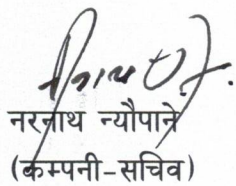 नरनाथ न्यौपाने
(कम्पनी-सचिव)